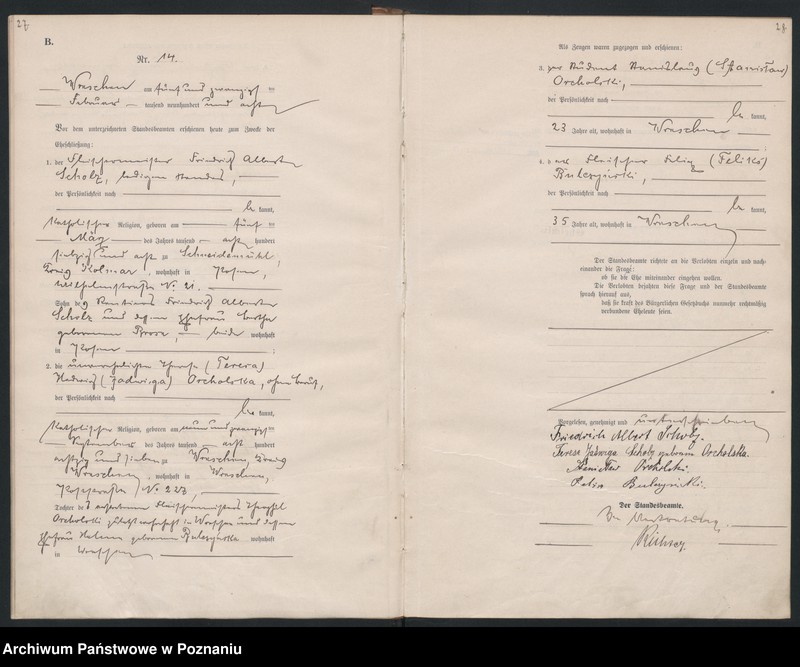 27
B.
Nr. 14.
Wreschen am fünf und zwanzigsten
Februar tausend neunhundert und acht
Vor dem unterzeichneten Standesbeamten erschienen heute zum Zwecke der
Eheschließung:
1. der Fleischermeister Friedrich Albert
Scholz, ledigen Standes,
der Persönlichkeit nach
be kannt,
katholischer Religion, geboren am fünften
März des Jahres tausend acht hundert
siebzig und acht zu Schneidemühl,
Kreis Kolmar, wohnhaft in Posen,
No. 21.
Sohn des Rentiers Friedrich Albert
Scholz und dessen Ehefrau Bertha
geborenen beide wohnhaft
in Posen
2. die unverehelichte Therese (Teresa)
Hedwig (Jadwiga) Orcholska, ohne Beruf,
der Persönlichkeit nach
be kannt,
katholischer Religion, geboren am neun und zwanzigsten
September des Jahres tausend acht hundert
achtzig und sieben zu Wreschen, Kreis
Wreschen, wohnhaft in Wreschen,
No. 223,
Tochter des verstorbenen Fleischermeisters
Orcholski zuletzt wohnhaft in Wreschen und dessen
Ehefrau geborenen Buleszynska wohnhaft
in Wreschen
28
Als Zeugen waren zugezogen und erschienen:
3. der Student Stanislaus (Stanisław)
Orcholski,
der Persönlichkeit nach
be kannt,
23 Jahre alt, wohnhaft in Wreschen
4. der Fleischer Felix (Feliks)
Buleszynski,
der Persönlichkeit nach
be kannt,
35 Jahre alt, wohnhaft in Wreschen
Der Standesbeamte richtete an die Verlobten einzeln und nach-
einander die Frage:
ob sie die Ehe miteinander eingehen wollen.
Die Verlobten bejahten diese Frage und der Standesbeamte
sprach hierauf aus,
daß sie kraft des Bürgerlichen Gesetzbuchs nunmehr rechtmäßig
verbundene Eheleute seien.
Vorgelesen, genehmigt und unterschrieben
Friedrich Albert Scholz.
Teresa Jadwiga Scholz geborene Orcholska.
Stanisław Orcholski.
Feliks Buleszynski.
Der Standesbeamte.
In Vertretung.
Archiwum Państwowe w Poznaniu